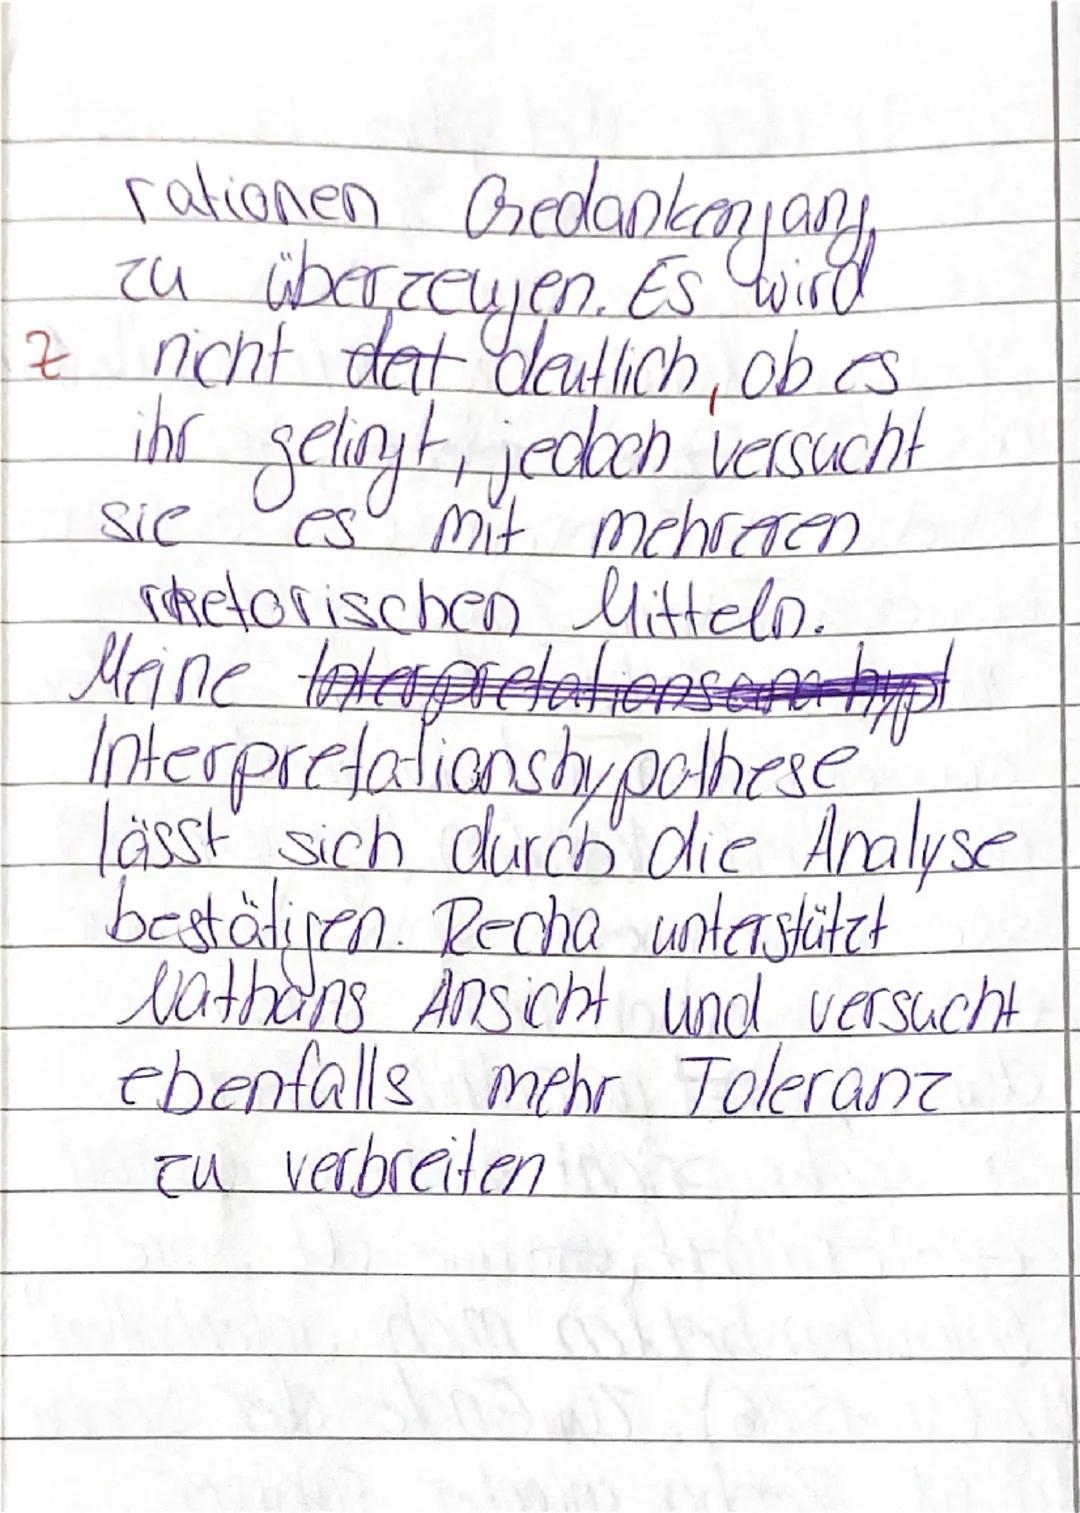 rationen Gedankengang
zu überzeugen. Es wird
Z nicht dat deutlich, ob es
ihr gelingt, jedoch versucht
sie es mit mehreren
rhetorischen Mitteln.
Meine Interpretationsana hypt
Interpretationshypothese
lässt sich durch die Analyse
bestätigen. Recha unterstützt
Nathans Ansicht und versucht
ebenfalls mehr Toleranz
zu verbreiten